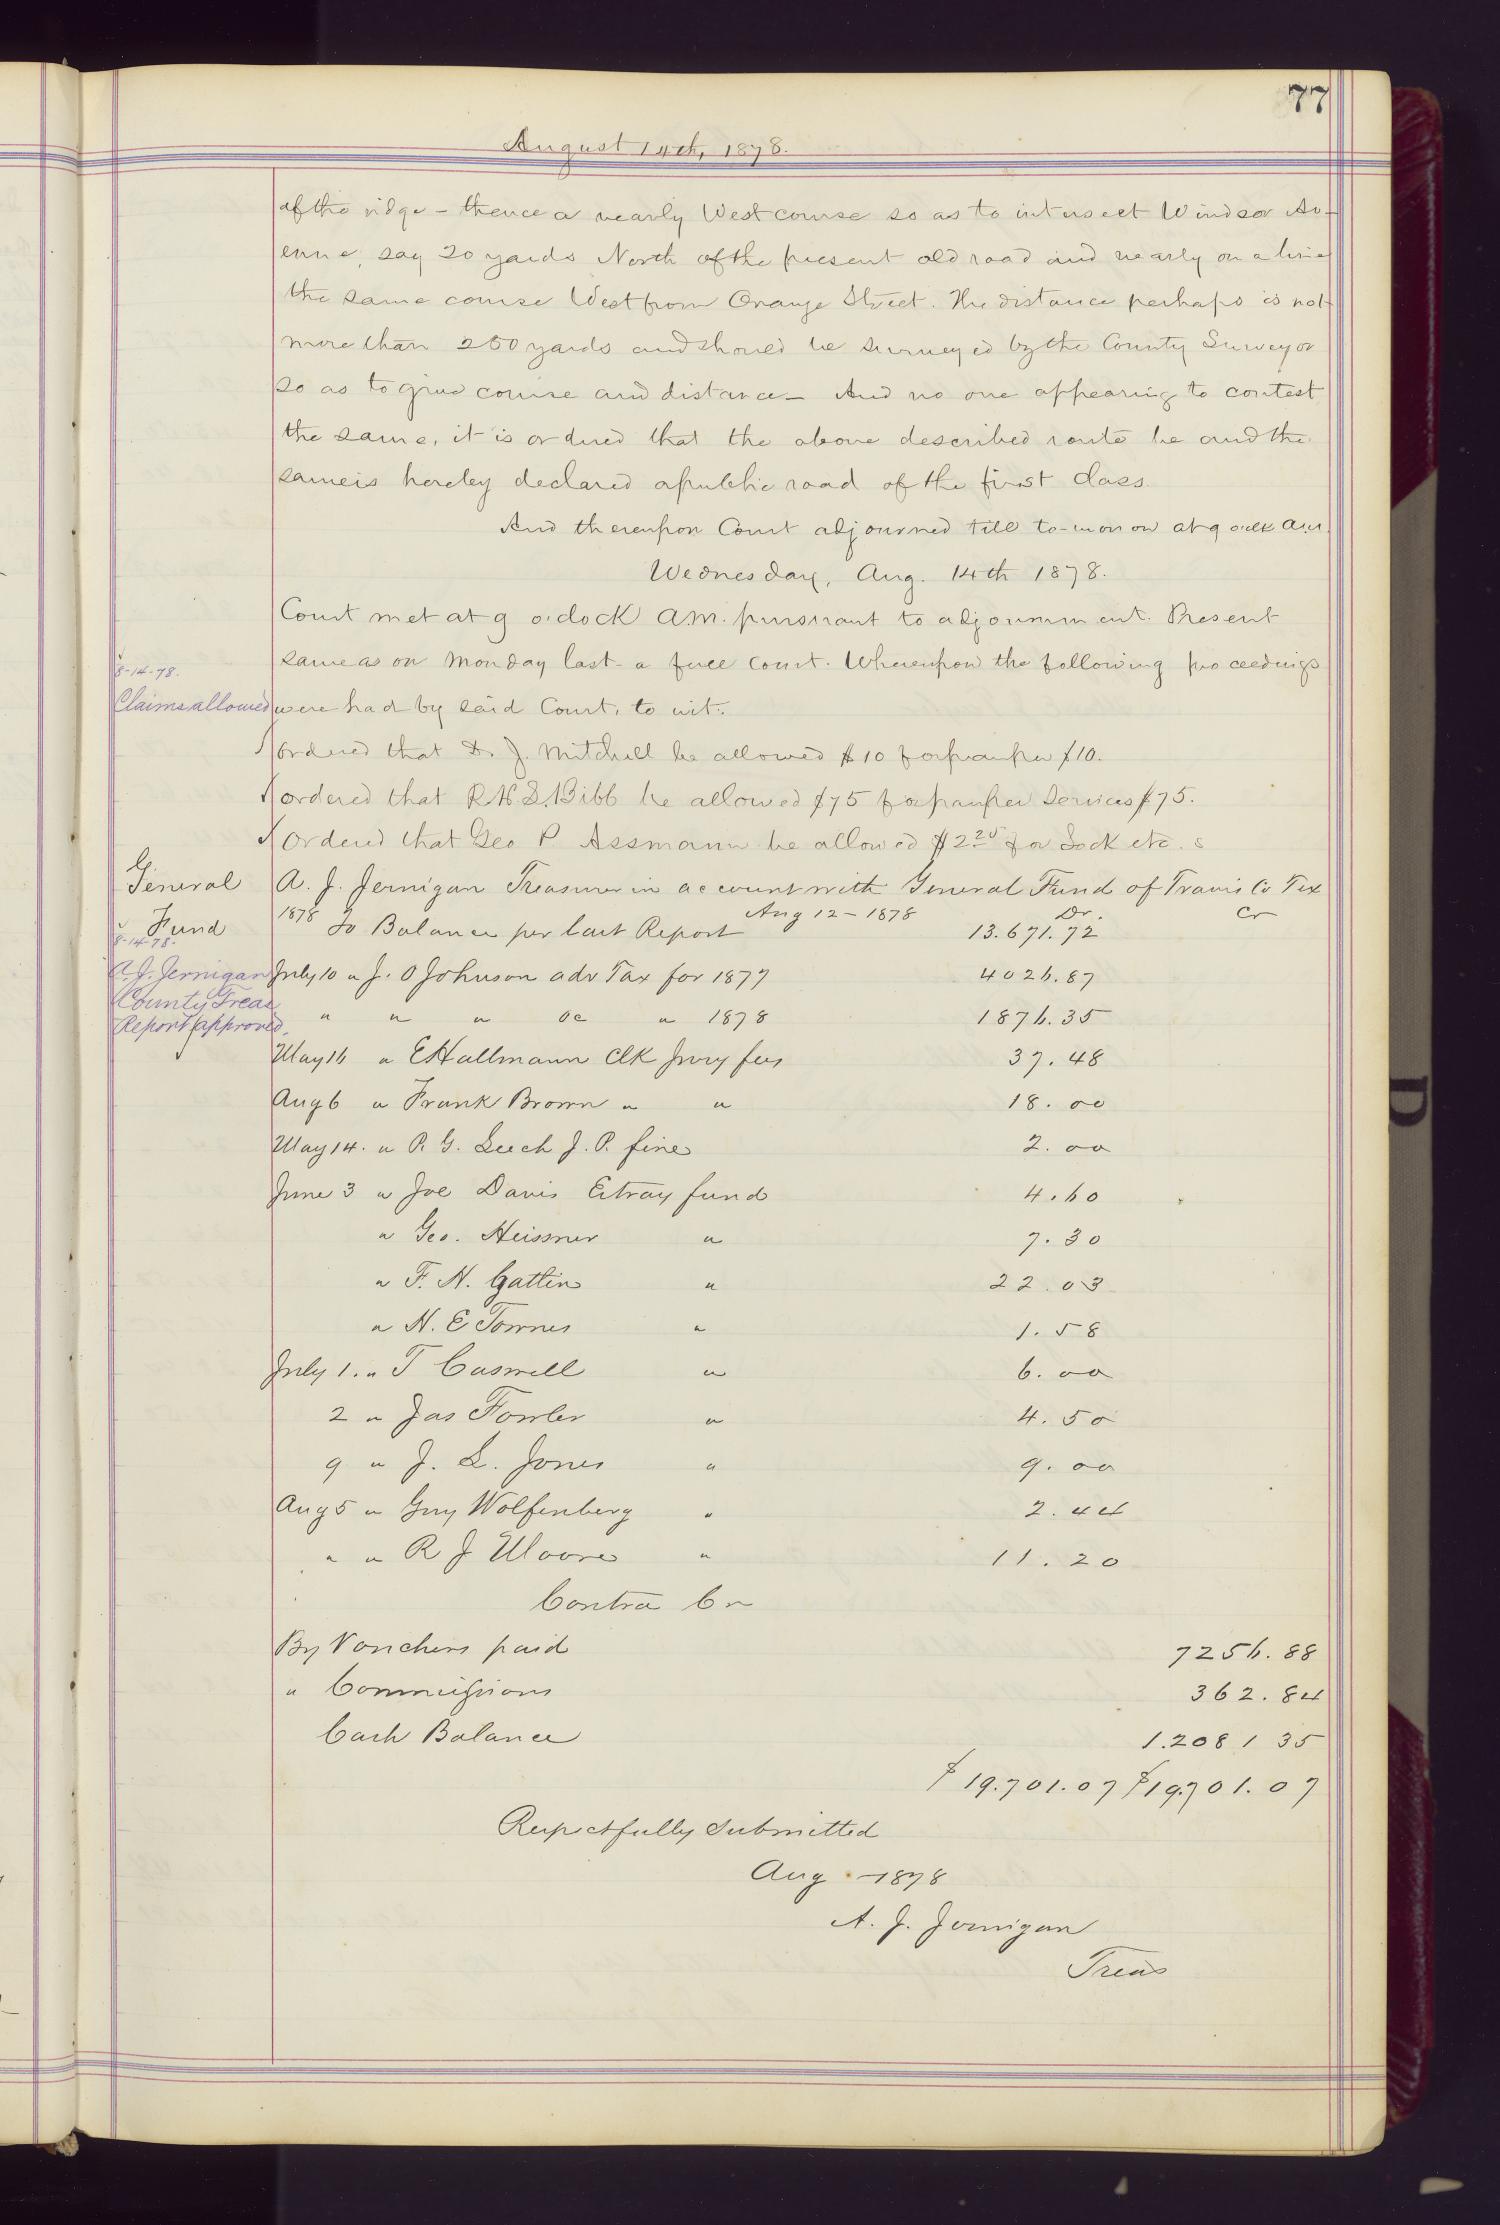 77
August 14th, 1878.
of the ridge – thence a nearly West course so as to intersect Windsor Av-
enue, say 20 yards North of the present old road and nearly on a line
the same course West from Orange Street. The distance perhaps is not
more than 250 yards and should be surveyed by the County Surveyor
so as to give course and distance – And no one appearing to contest
the same, it is ordered that the above described route be and the
same is hereby declared a public road of the first class.
And thereupon Court adjourned till to-morrow at 9 oclk A.M.
Wednesday, Aug. 14th 1878.
Court met at 9 o'clock A.M. pursuant to adjournment. Present
same as on Monday last – a full Court. Whereupon the following proceedings
8-14-78.
Claims allowed were had by said Court, to wit:
ordered that D. J. Mitchell be allowed $10 for pauper $10.
ordered that R.H.L. Bibb be allowed $75 for pauper services $75.
Ordered that Geo P Assmann be allowed $2 20 for Lock etc.
General A. J. Jernigan Treasurer in account with General Fund of Travis Co Tex
Fund 1878 To Balance per last Report Aug 12 – 1878 Dr. Cr
13.671.72
8-14-78.
A.J. Jernigan July 10 " J. O Johnson adv Tax for 1877 4026.87
County Treas
Report approved. " " " oc " 1878 1876.35
May 16 " E Hallmann Clk Jury fees 37.48
Aug 6 " Frank Brown " " 18.00
May 14. " P. G. Leech J. P. fine 2.00
June 3 " Joe Davis Estray fund 4.60
" Geo. Heissner " 7.30
" F. H. Gattin " 22.03
" H. E Townes " 1.58
July 1. " T Caswell " 6.00
2 " Jas Fowler " 4.50
9 " J. L. Jones " 9.00
Aug 5 " Guy Wolfenberg " 2.44
" " R J Moore " 11.20
Contra Cr
By Vouchers paid 7256.88
" Commissions 362.84
Cash Balance 1.208 1 35
$19.701.07 $19.701.07
Respectfully submitted
Aug – 1878
A. J. Jernigan
Treas